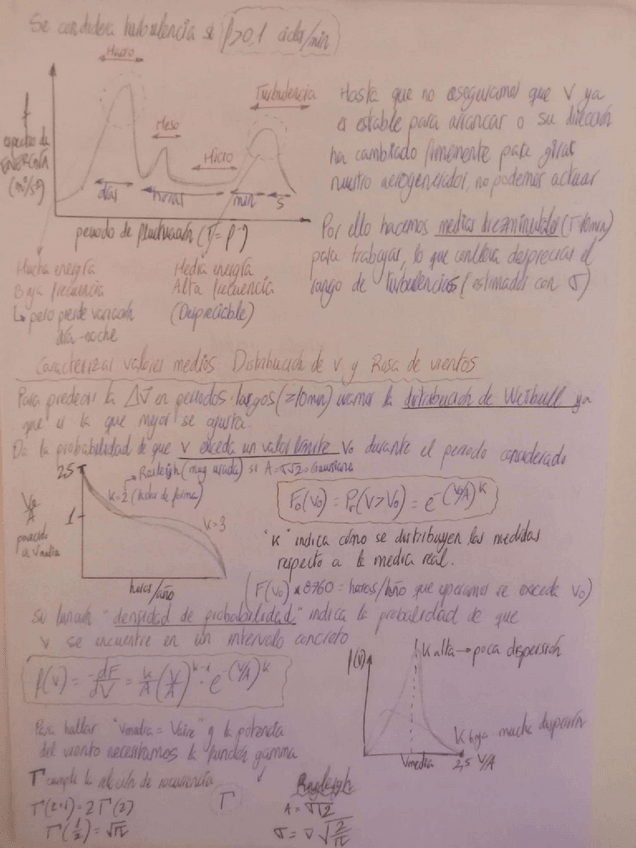 Se considera turbulencia si f>0,1 ciclo/min
Macro
Turbulencia
Meso
Micro
espectro de
ENERGÍA
(m²/s²)
días
horas
min
s
periodo de fluctuación (T=f⁻¹)
Mucha energía
Baja frecuencia
↳ pero pierde variación
día-noche
Media energía
Alta frecuencia
(Despreciable)
Hasta que no aseguramos que V ya
es estable para arrancar o su dirección
ha cambiado firmemente para girar
nuestro aerogenerador, no podemos actuar
Por ello hacemos medias diezminutales (T=10min)
para trabajar, lo que conlleva despreciar el
rango de turbulencias (estimados con σ)
Caracterizar valores medios: Distribución de v y Rosa de vientos
Para predecir la ΔV en periodos largos (≥10min) usamos la distribución de Weibull ya
que es la que mejor se ajusta.
Da la probabilidad de que v exceda un valor límite V₀ durante el periodo considerado
2,5
Rayleigh (muy usada) si A=σ√2
k=2 (factor de forma)
V₀/A
1
parecido
a Vmedia
k=3
horas/año
F₀(V₀) = Pr(V>V₀) = e^-(V₀/A)^k
"k" indica cómo se distribuyen las medidas
respecto a la media real.
(F(V₀)×8760 = horas/año que esperamos se exceda V₀)
Su función "densidad de probabilidad" indica la probabilidad de que
v se encuentre en un intervalo concreto
f(v) = -dF/dV = k/A (V/A)^k-1 · e^-(V/A)^k
f(v)
k alta → poca dispersión
k baja mucha dispersión
Vmedia
2,5 V/A
Para hallar "Vmedia = Vave" y la potencia
del viento necesitamos la función gamma
Γ cumple la relación de recurrencia
Γ(z+1)=zΓ(z)
Γ(1/2)=√π
Γ
Rayleigh
A=σ√2
σ=v̄√(2/π)